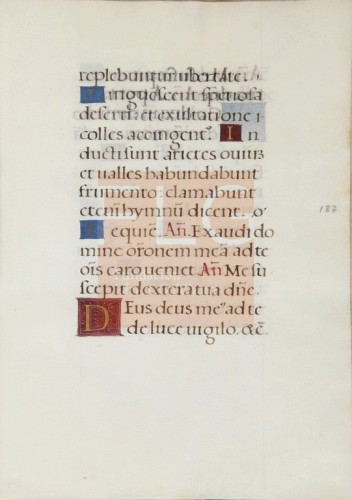 replebuntur ubertate.
Pinguescent speciosa
deserti: et exultatione
colles accingentˀ. In
ducti sunt arietes ouiū
et ualles habundabunt
frumento: clamabunt
eteni hymnū dicent.
Requiē. Añ. Exaudi do
mine orōnem meā ad te
oīs caro ueniet. Añ. Me su
scepit dextera tua dñe.
Deus deus meˀ ad te
de luce uigilo. &c̄.
187
FLC